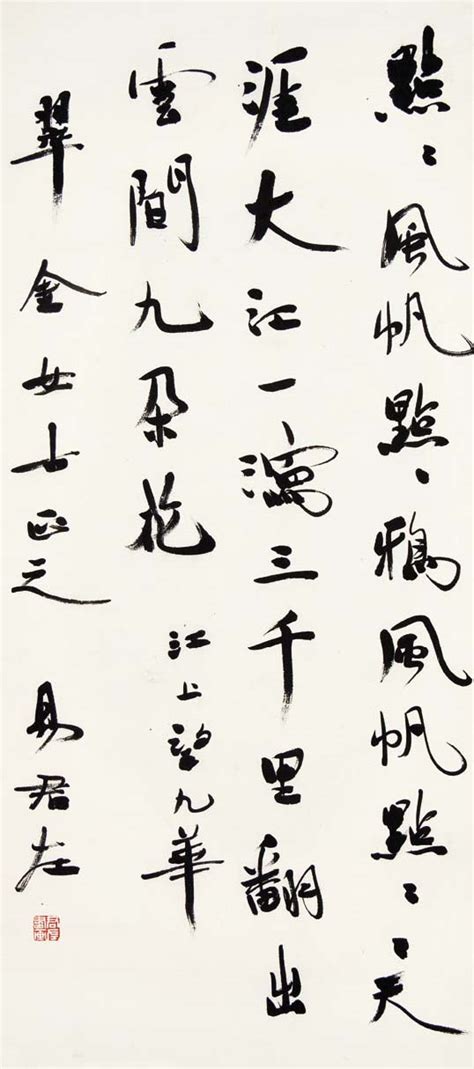 點〻風帆點〻鴉風帆點〻〻天
涯大江一瀉三千里翻出
雲間九朵花 江上望九華
翠金女士正之 易君左